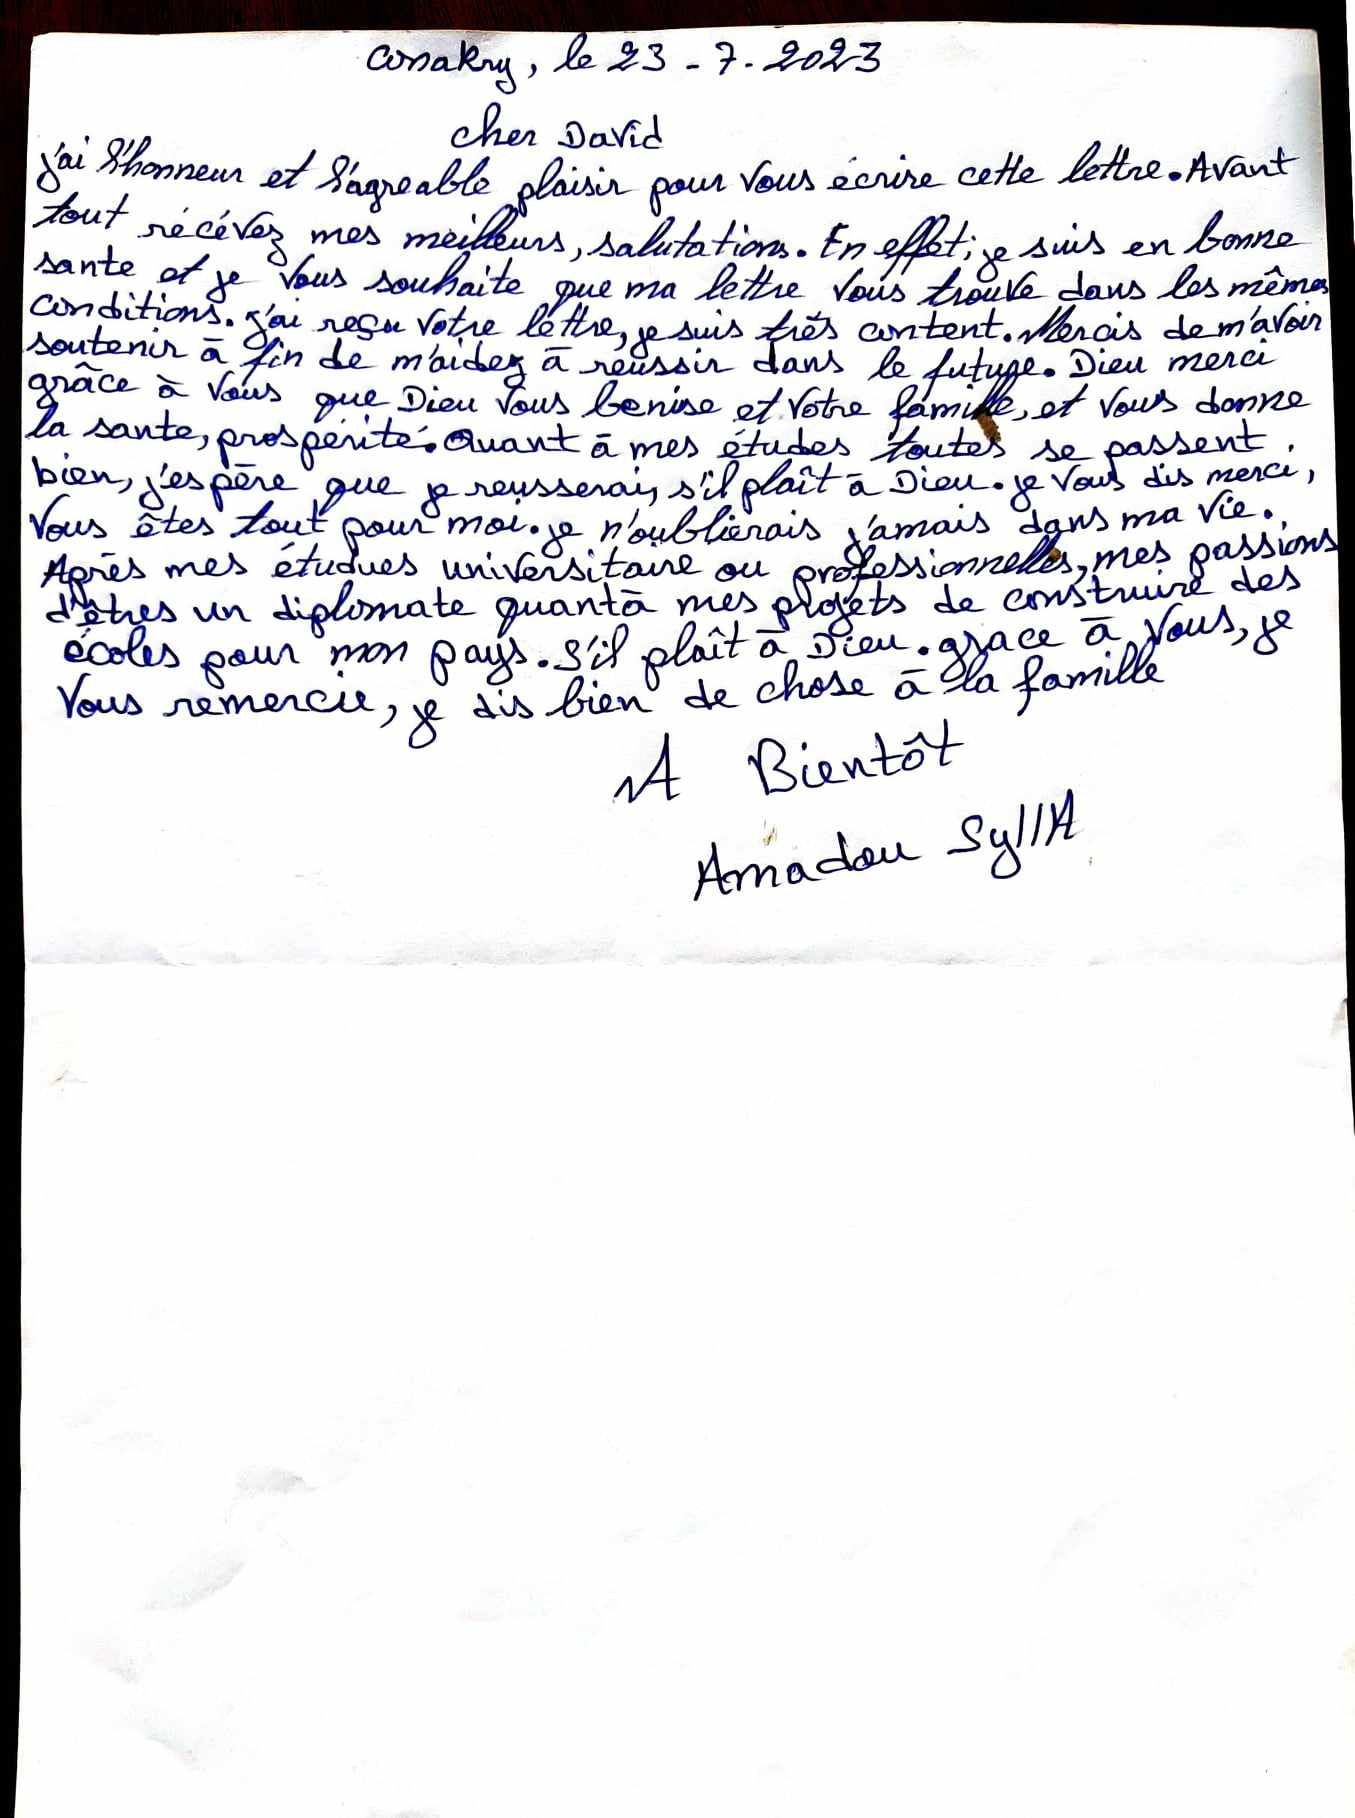 Conakry, le 23-7-2023
cher David
j'ai l'honneur et l'agreable plaisir pour vous écrire cette lettre. Avant
tout récévez mes meilleurs, salutations. En effet; je suis en bonne
sante et je vous souhaite que ma lettre vous trouve dans les mêmes
conditions. j'ai reçu votre lettre, je suis très content. Mercis de m'avoir
soutenir à fin de m'aidez à réussir dans le future. Dieu merci
grâce à vous que Dieu vous benise et votre famille, et vous donne
la sante, prospérité. Quant à mes études toutes se passent
bien, j'espère que je reusserai, s'il plaît à Dieu. je vous dis merci,
vous êtes tout pour moi. je n'oublierais j'amais dans ma vie.
Après mes étudues universitaire ou professionnelles, mes passions
d'êtres un diplomate quantà mes projets de construire des
écoles pour mon pays. S'il plaît à Dieu. grace à vous, je
vous remercie, je dis bien de chose à la famille
A Bientôt
Amadou SyllA